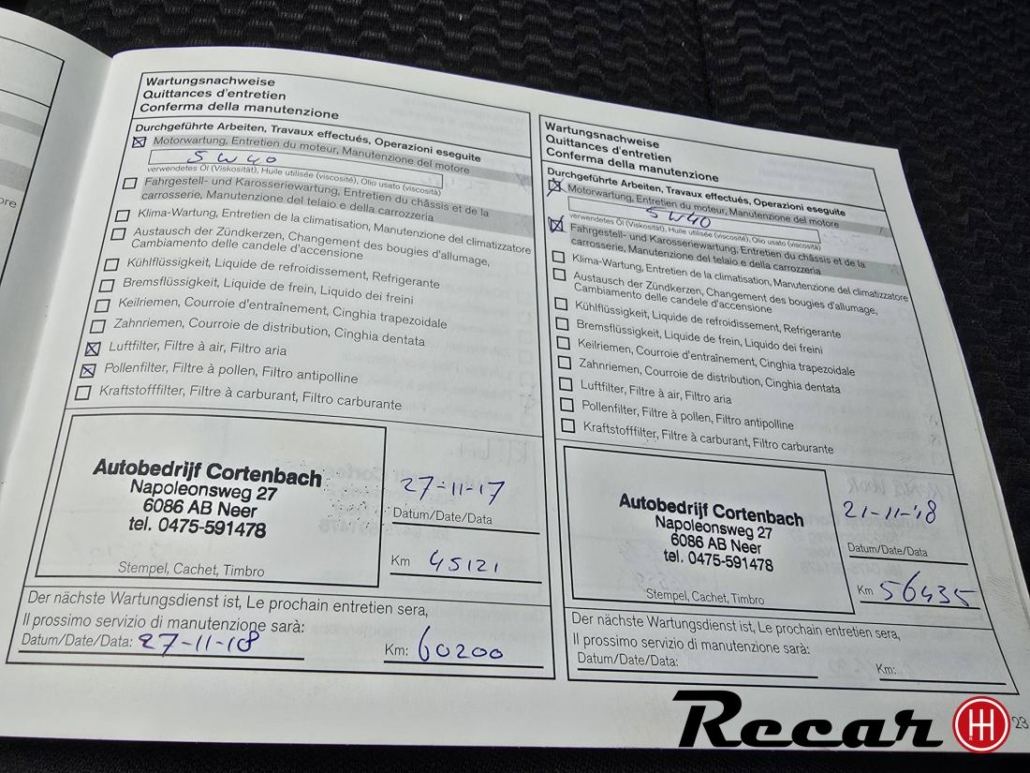 Wartungsnachweise
Quittances d'entretien
Conferma della manutenzione
Durchgeführte Arbeiten, Travaux effectués, Operazioni eseguite
Motorwartung, Entretien du moteur, Manutenzione del motore
5W40
verwendetes Öl (Viskosität), Huile utilisée (viscosité), Olio usato (viscosità)
Fahrgestell- und Karosseriewartung, Entretien du châssis et de la
carrosserie, Manutenzione del telaio e della carrozzeria
Klima-Wartung, Entretien de la climatisation, Manutenzione del climatizzatore
Austausch der Zündkerzen, Changement des bougies d'allumage,
Cambiamento delle candele d'accensione
Kühlflüssigkeit, Liquide de refroidissement, Refrigerante
Bremsflüssigkeit, Liquide de frein, Liquido dei freini
Keilriemen, Courroie d'entraînement, Cinghia trapezoidale
Zahnriemen, Courroie de distribution, Cinghia dentata
Luftfilter, Filtre à air, Filtro aria
Pollenfilter, Filtre à pollen, Filtro antipolline
Kraftstofffilter, Filtre à carburant, Filtro carburante
Autobedrijf Cortenbach
Napoleonsweg 27
6086 AB Neer
tel. 0475-591478
Stempel, Cachet, Timbro
27-11-17
Datum/Date/Data
Km 45121
Der nächste Wartungsdienst ist, Le prochain entretien sera,
Il prossimo servizio di manutenzione sarà:
Datum/Date/Data: 27-11-18 Km: 60200
Wartungsnachweise
Quittances d'entretien
Conferma della manutenzione
Durchgeführte Arbeiten, Travaux effectués, Operazioni eseguite
Motorwartung, Entretien du moteur, Manutenzione del motore
5W40
verwendetes Öl (Viskosität), Huile utilisée (viscosité), Olio usato (viscosità)
Fahrgestell- und Karosseriewartung, Entretien du châssis et de la
carrosserie, Manutenzione del telaio e della carrozzeria
Klima-Wartung, Entretien de la climatisation, Manutenzione del climatizzatore
Austausch der Zündkerzen, Changement des bougies d'allumage,
Cambiamento delle candele d'accensione
Kühlflüssigkeit, Liquide de refroidissement, Refrigerante
Bremsflüssigkeit, Liquide de frein, Liquido dei freini
Keilriemen, Courroie d'entraînement, Cinghia trapezoidale
Zahnriemen, Courroie de distribution, Cinghia dentata
Luftfilter, Filtre à air, Filtro aria
Pollenfilter, Filtre à pollen, Filtro antipolline
Kraftstofffilter, Filtre à carburant, Filtro carburante
Autobedrijf Cortenbach
Napoleonsweg 27
6086 AB Neer
tel. 0475-591478
Stempel, Cachet, Timbro
21-11-'18
Datum/Date/Data
Km 56435
Der nächste Wartungsdienst ist, Le prochain entretien sera,
Il prossimo servizio di manutenzione sarà:
Datum/Date/Data: Km:
23
Recar H